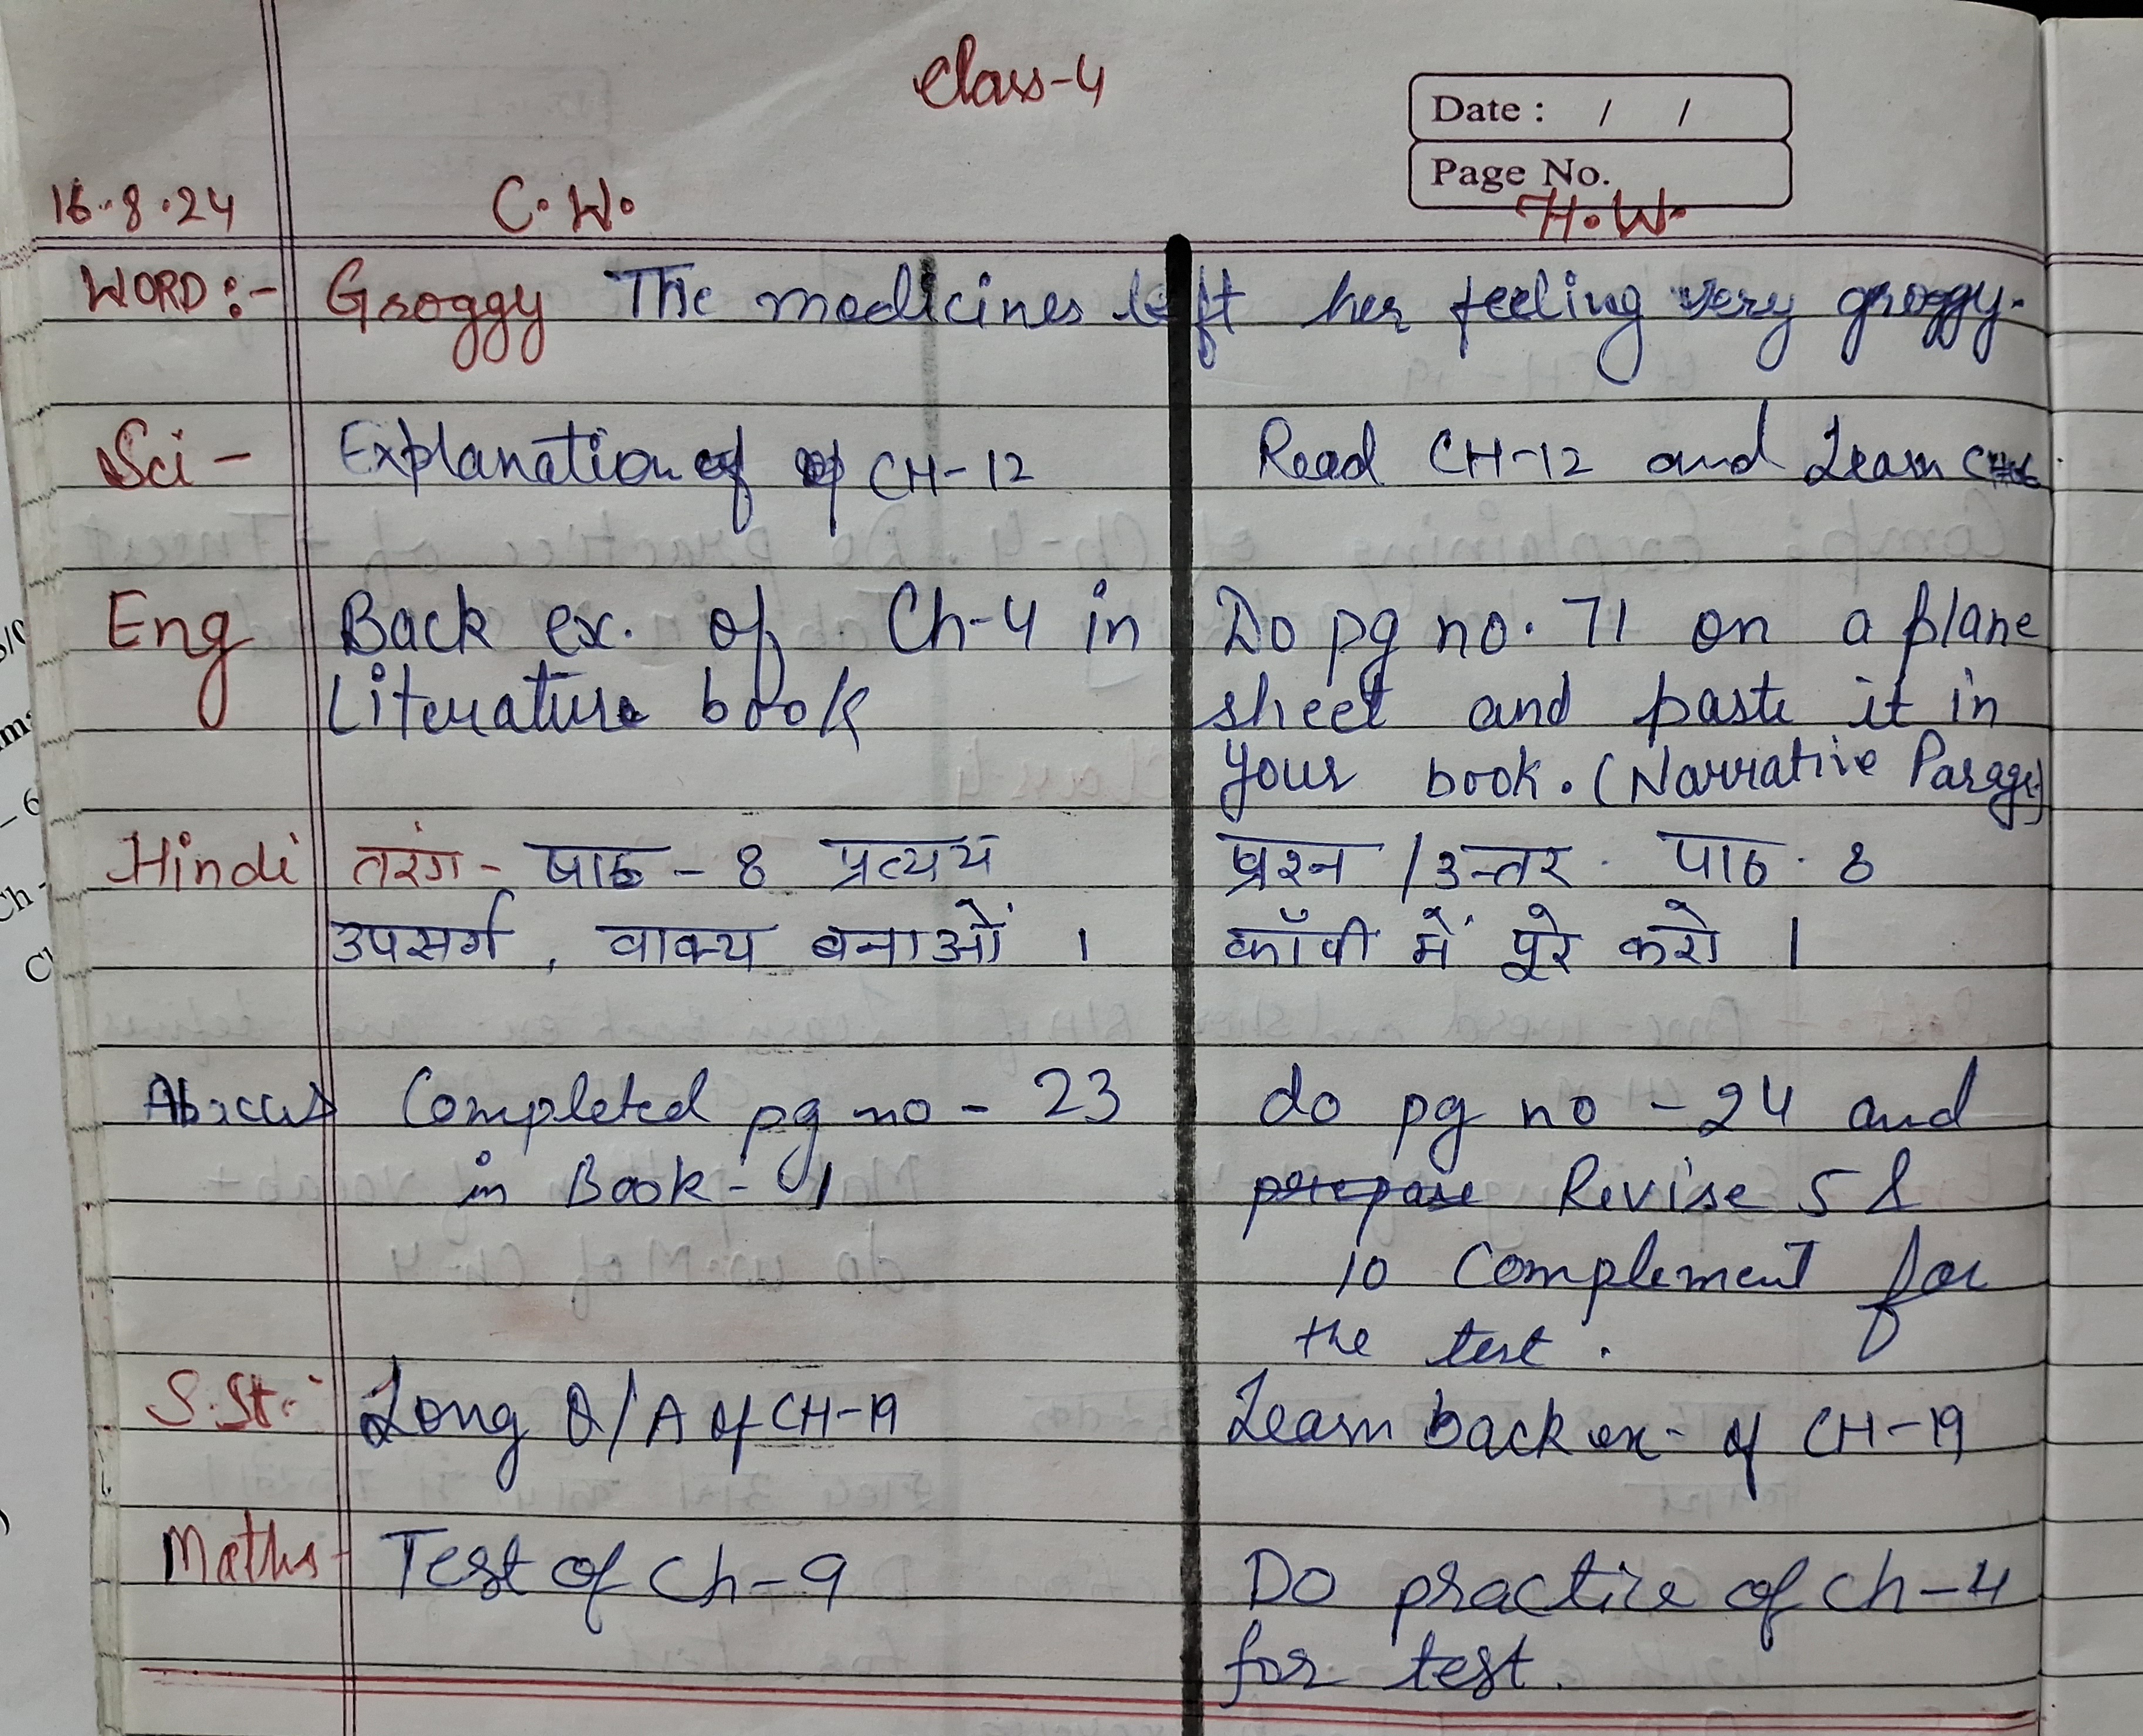 Class-4
Date : / /
Page No.
16.8.24 C.W. H.W.
WORD:- Groggy The medicines left her feeling very groggy.
Sci - Explanation of of CH-12 Read CH-12 and Learn
Eng Back ex. of Ch-4 in Do pg no. 71 on a plane
Literature book sheet and paste it in
your book. (Narrative Parag)
Hindi तरंग - पाठ - 8 प्रत्यय प्रश्न / उत्तर . पाठ . 8
उपसर्ग , वाक्य बनाओं । कॉपी में पूरे करो ।
Abacus Completed pg no - 23 do pg no - 24 and
in Book - 1 prepare Revise 5 &
10 complement for
the test .
S.St.- Long Q/A of CH-19 Learn back ex- of CH-19
Maths - Test of Ch-9 Do practice of ch-4
for test.